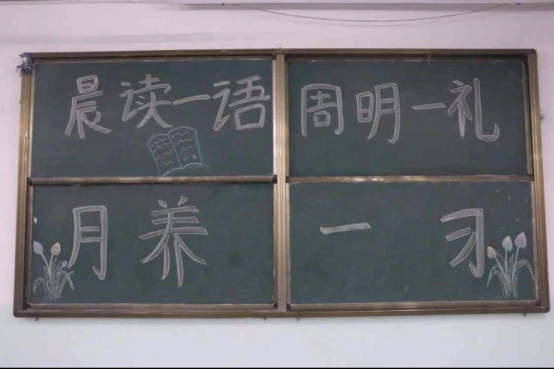 晨读一语 周明一礼
月养一习